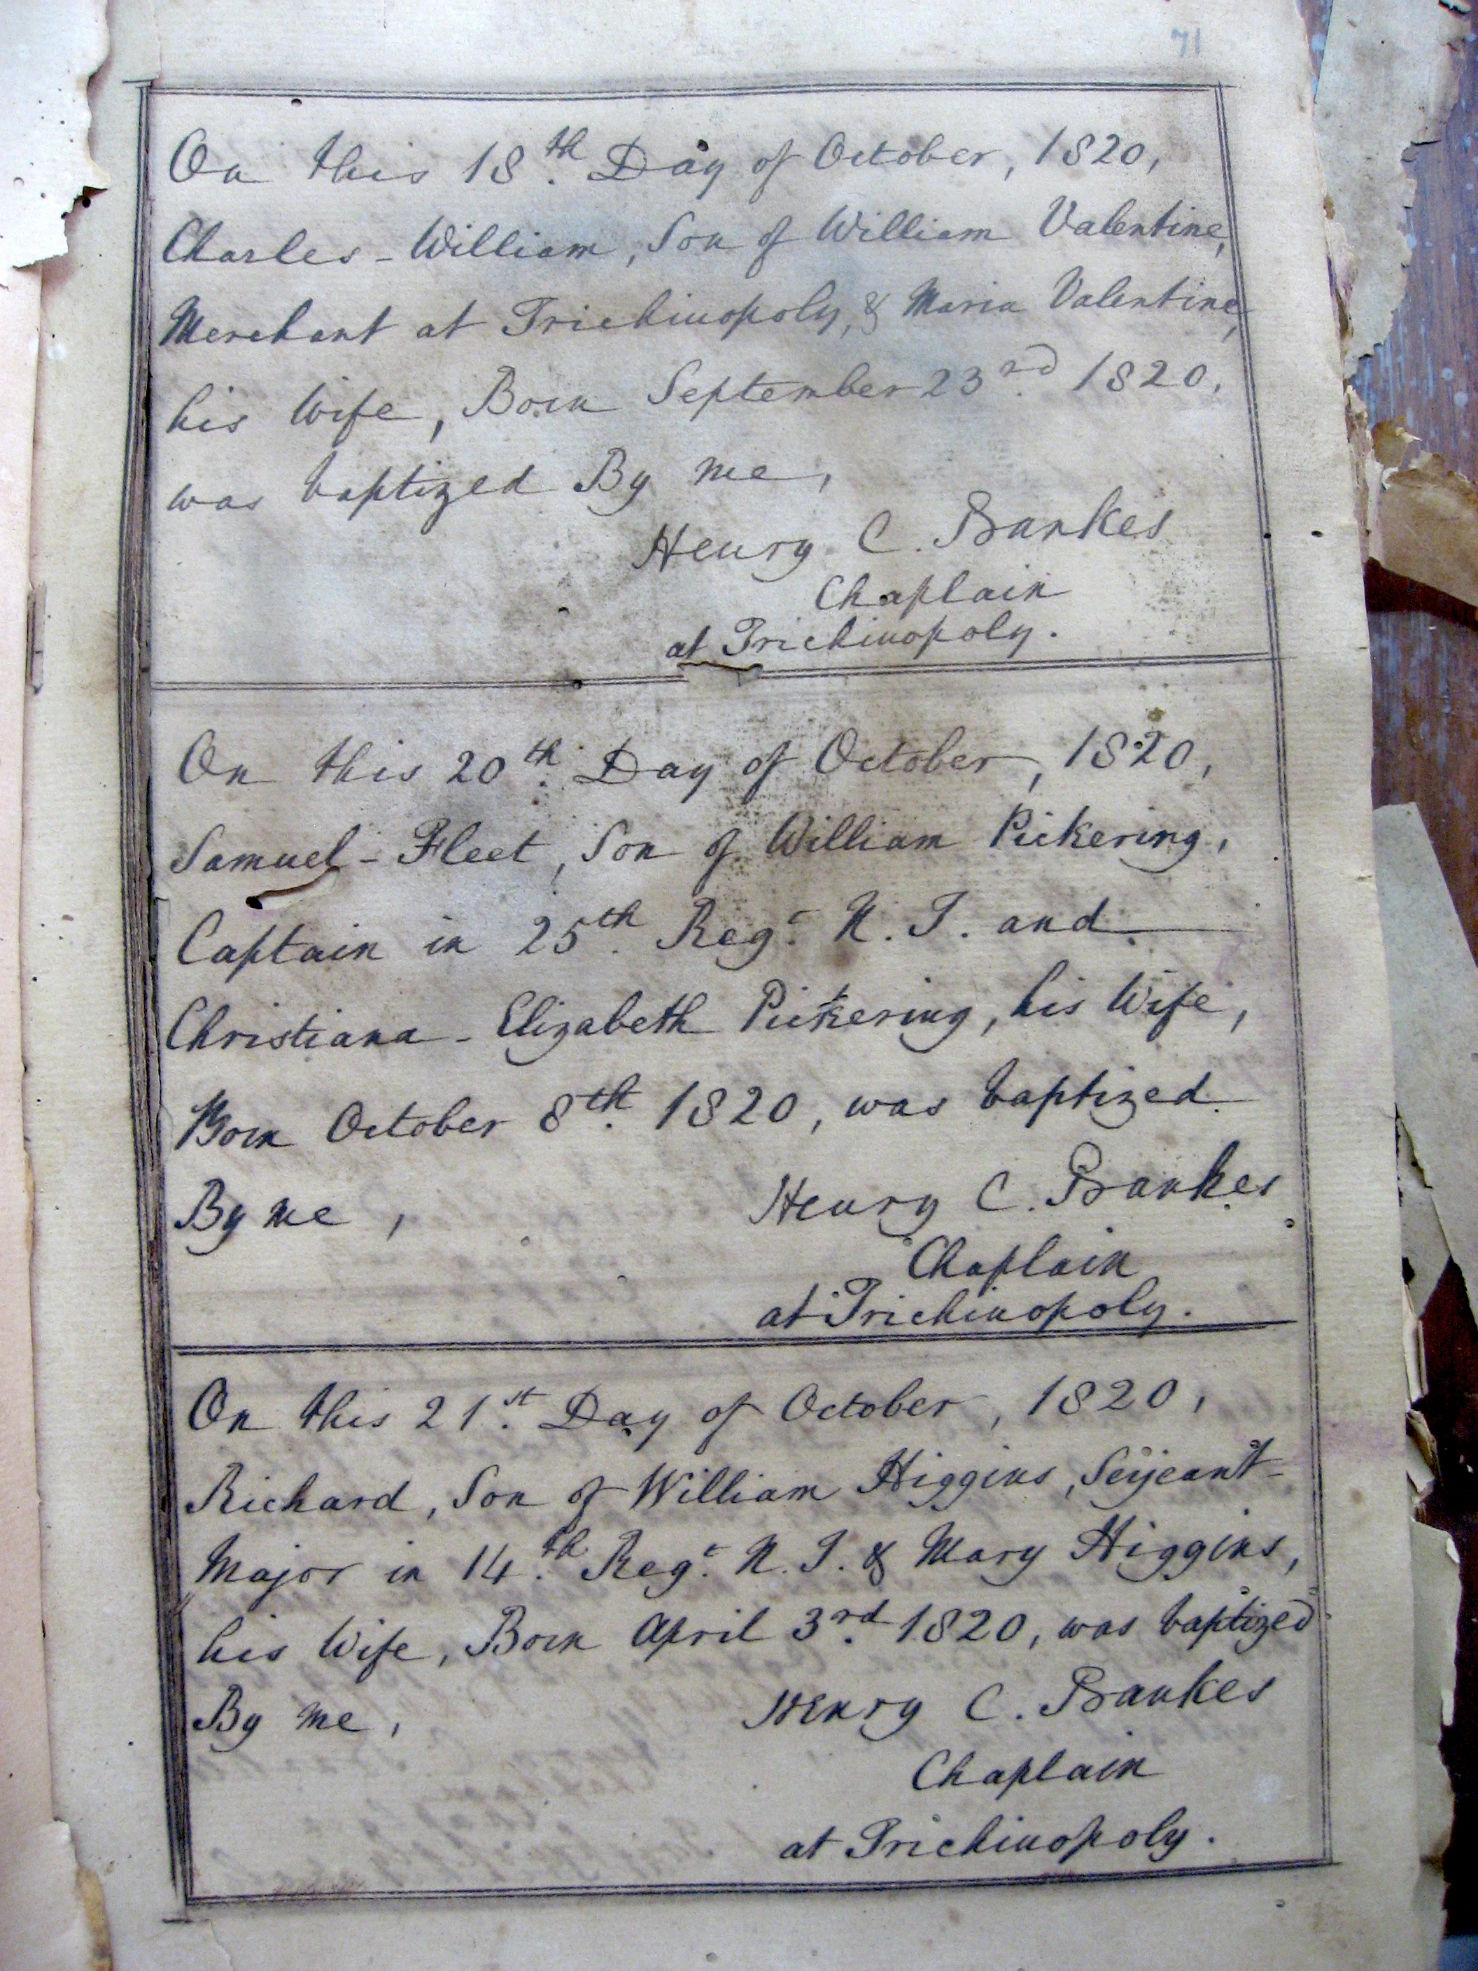 71
On this 18th. Day of October, 1820,
Charles - William, Son of William Valentine,
Merchant at Trichinopoly, & Maria Valentine,
his Wife, Born September 23rd. 1820,
was baptized By me,
Henry C. Bankes
Chaplain
at Trichinopoly.
On this 20th. Day of October, 1820,
Samuel - Fleet, Son of William Pickering,
Captain in 25th. Regt. N. I. and
Christiana - Elizabeth Pickering, his Wife,
Born October 8th. 1820, was baptized
By me,
Henry C. Bankes
Chaplain
at Trichinopoly.
On this 21st. Day of October, 1820,
Richard, Son of William Higgins, Serjeant-
Major in 14th. Regt. N. I. & Mary Higgins,
his Wife, Born April 3rd. 1820, was baptized
By me,
Henry C. Bankes
Chaplain
at Trichinopoly.